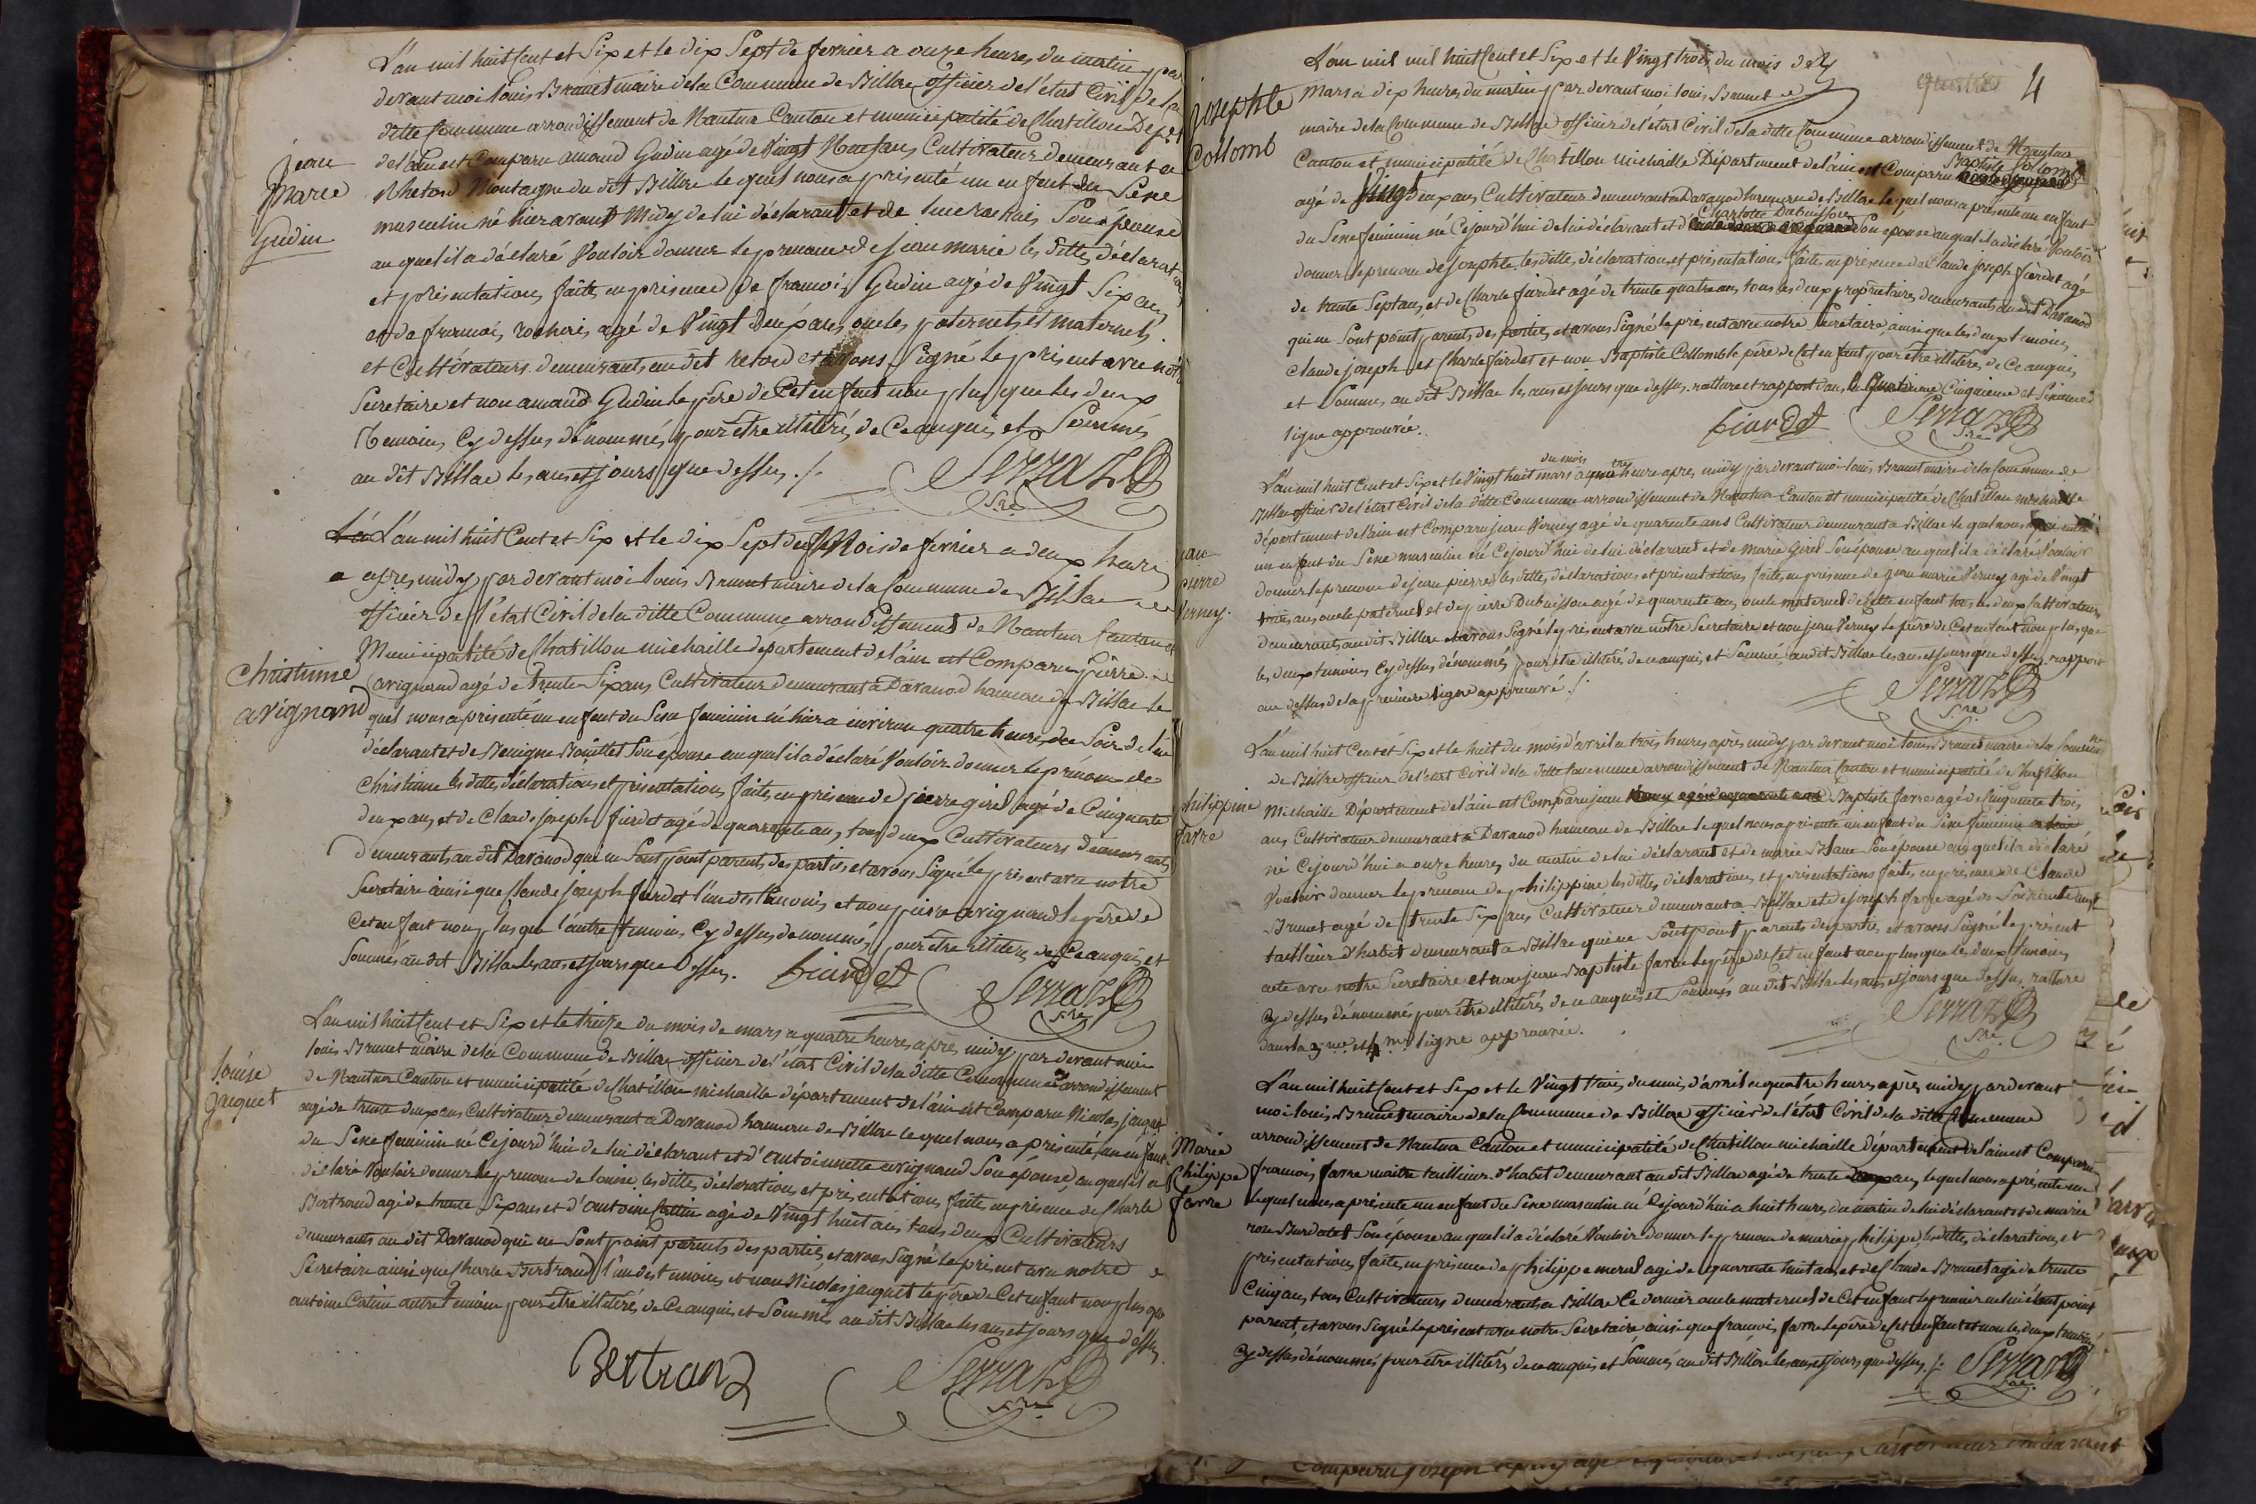 Jean
Marie
Gudin
L'an mil huit Cent et Six et le dix Sept de fevrier a onze heures du matin par
devant moi louis Brunet maire de la Commune de Billiac officier de l'état Civil de la
ditte Commune arrondissement de Nantua Canton et municipalité de Chatillon Dépt
de l'ain est Comparu amand Gudin agé de Vingt Neuf ans Cultivateur demeurant a
Montagne du dit Billiac le quel nous a présenté un enfant du Sexe
masculin né hier avant Midy de lui déclarant et de Son épouse
au quel il a déclaré Vouloir donner le prenom de jean marie les dittes déclaration
et présentation faites en présence de francois Gudin agé de Vingt Six ans
et de francois rochaix agé de Vingt deux ans oncles paternels et maternels
et Cultivateurs demeurants au dit et avons Signé le présent avec notre
Secretaire et non amand Gudin le père de Cet enfant non plus que les deux
témoins Cy dessus dénommés pour être illitérés de Ce enquis et Sommés
au dit Billiac les ans et jours que dessus ./.
Serraz
Sre
Christinne
avignand
L'an mil huit Cent et Six et le dix Sept du Mois de fevrier a deux heures
apres midy par devant moi louis Brunet maire de la Commune de Billiac
officier de l'état Civil de la ditte Commune arrondissement de Nantua Canton et
Municipalité de Chatillon michaille département de l'ain est Comparu pierre
avignand agé de trente Six ans Cultivateur demeurant à Davanod hameau de Billiac le
quel nous a présenté un enfant du Sexe feminin né hier a environ quatre heures du Soir de lui
déclarant et de Benigne Bouillet Son épouse au quel il a déclaré Vouloir donner le prénom de
Christinne les dittes déclaration et présentation faites en présence de pierre girel agé de Cinquante
deux ans et de Claude joseph fiardet agé de quarante ans tous deux Cultivateurs demeurants
au dit Davanod qui ne Sont point parents des parties et avons Signé le présent avec notre
Secretaire ainsi que Claude joseph fiardet l'un des témoins et non pierre avignand le père de
Cet enfant non plus que l'autre témoin Cy dessus dénommé pour être illitérés de Ce enquis et
Sommés au dit Billiac les ans et jours que dessus.
fiardet
Serraz
Sre
louise
jacquet
L'an mil huit Cent et Six et le treize du mois de mars a quatre heures apres midy par devant moi
louis Brunet maire de la Commune de Billiac officier de l'état Civil de la ditte Commune arrondissement
de Nantua Canton et municipalité de Chatillon michaille département de l'ain est Comparu Nicolas jacquet
agé de trente deux ans Cultivateur demeurant a Davanod hameau de Billiac le quel nous a présenté un enfant
du Sexe feminin né Cejourd'hui de lui déclarant et d'antoinnette avignand Son épouse, au quel il a
déclaré Vouloir donner le prenom de louise les dittes déclaration et présentation faites en présence de Charle
Bertrand agé de trente Six ans et d'antoine agé de Vingt huit ans tous deux Cultivateurs
demeurants au dit Davanod qui ne Sont point parents des parties et avons Signé le présent avec notre
Secretaire ainsi que Charle Bertrand l'un des témoins et non Nicolas jacquet le père de Cet enfant non plus que
antoine autre témoin pour être illitérés de Ce enquis et Sommés au dit Billiac les ans et jours que dessus
Bertrand
Serraz
Sre
4
josephte
Collomb
L'an mil mil huit Cent et Six et le Vingt trois du mois de
Mars a dix heures du matin par devant moi louis Brunet
maire de la Commune de Billiac officier de l'état Civil de la ditte Commune arrondissement de Nantua
Canton et municipalité de Chatillon michaille Département de l'ain est Comparu Baptiste Collomb
agé de Vingt deux ans Cultivateur demeurant a Davanod hameau de Billiac le quel nous a présenté un enfant
du Sexe feminin né Cejourd'hui de lui déclarant et de Charlotte Dubuisson Son épouse au quel il a déclaré Vouloir
donner le prenom de josephte, les dittes déclaration et présentation faites en présence de Claude joseph fiardet agé
de trente Sept ans, et de Charle fiardet agé de trente quatre ans tous les deux proprietaires demeurants au dit Davanod
qui ne Sont point parents des parties et avons Signé le présent avec notre Secretaire ainsi que les deux témoins
Claude joseph et Charle fiardet et non Baptiste Collomb le père de Cet enfant pour être illitéré de Ce enquis
et Sommé au dit Billiac les ans et jours que dessus. rature et rapport dans la Quatrieme Cinquieme et Sixieme
ligne approuvée.
fiardet
Serraz
Sre
jean
pierre
Verney
L'an mil huit Cent et Six et le Vingt huit du mois mars a heure apres midy par devant moi louis Brunet maire de la Commune de
Billiac officier de l'état Civil de la ditte Commune arrondissement de Nantua Canton et municipalité de Chatillon michaille
département de l'ain est Comparu jean Verney agé de quarante ans Cultivateur demeurant a Billiac le quel nous
un enfant du Sexe masculin né Cejourd'hui de lui déclarant et de marie Girel Son épouse au quel il a déclaré Vouloir
donner le prenom de jean pierre les dittes déclaration et présentation faites en présence de jean marie Verney agé de Vingt
trois ans oncle paternel et de pierre Dubuisson agé de quarante ans oncle maternel de Cette enfant tous les deux Cultivateurs
demeurants au dit Billiac et avons Signé le présent avec notre Secretaire et non jean Verney le père de Cet enfant non plus que
les deux témoins Cy dessus dénommés pour être illitérés de ce enquis et Sommés au dit Billiac les ans et jours que dessus. rapport
au dessus de la premiere ligne approuvé ./.
Serraz
Sre
philippine
farre
L'an mil huit Cent et Six et le huit du mois d'avril a trois heures après midy par devant moi louis Brunet maire de la Commune
de Billiac officier de l'état Civil de la ditte Commune arrondissement de Nantua Canton et municipalité de Chatillon
Michaille Département de l'ain est Comparu jean Baptiste farre agé de Cinquante trois
ans Cultivateur demeurant a Davanod hameau de Billiac le quel nous a présenté un enfant du Sexe feminin
né Cejourd'hui a onze heures du matin de lui déclarant et de marie Blanc Son épouse au quel il a déclaré
Vouloir donner le prenom de philippine les dittes déclaration et présentation faites en présence de Claude
Brunet agé de trente Six ans Cultivateur demeurant a Billiac et de joseph farre agé de
tailleur d'habit demeurant a Billiac qui ne Sont point parents des parties et avons Signé le présent
acte avec notre Secretaire et non jean Baptiste farre le père de Cet enfant non plus que les deux témoins
Cy dessus dénommés pour être illitérés de ce enquis et Sommés au dit Billiac les ans et jours que dessus, rature
dans la 3me et 4me ligne approuvée.
Serraz
Sre
Marie
Philippe
farre
L'an mil huit Cent et Six et le Vingt trois du mois d'avril a quatre heures après midy par devant
moi louis Brunet maire de la Commune de Billiac officier de l'état Civil de la ditte Commune
arrondissement de Nantua Canton et municipalité de Chatillon michaille Département de l'ain est Comparu
francois farre maitre tailleur d'habit demeurant au dit Billiac agé de trente ans lequel nous a présenté un
lequel nous a présenté un enfant du Sexe masculin né Cejourd'hui a huit heures du matin de lui déclarant et de marie
rose Burdalet Son épouse au quel il a déclaré Vouloir donner le prenom de marie philippe, les dittes déclaration et
présentation faites en présence de philippe agé de quarante huit ans et de Claude Brunet agé de trente
Cinq ans tous Cultivateurs demeurants a Billiac Ce dernier oncle maternel de Cet enfant le premier ne lui étant point
parent, et avons Signé le présent avec notre Secretaire ainsi que francois farre le père de Cet enfant et non les deux témoins
Cy dessus dénommés pour être illitérés de ce enquis et Sommés au dit Billiac les ans et jours que dessus ./.
Serraz
Sre